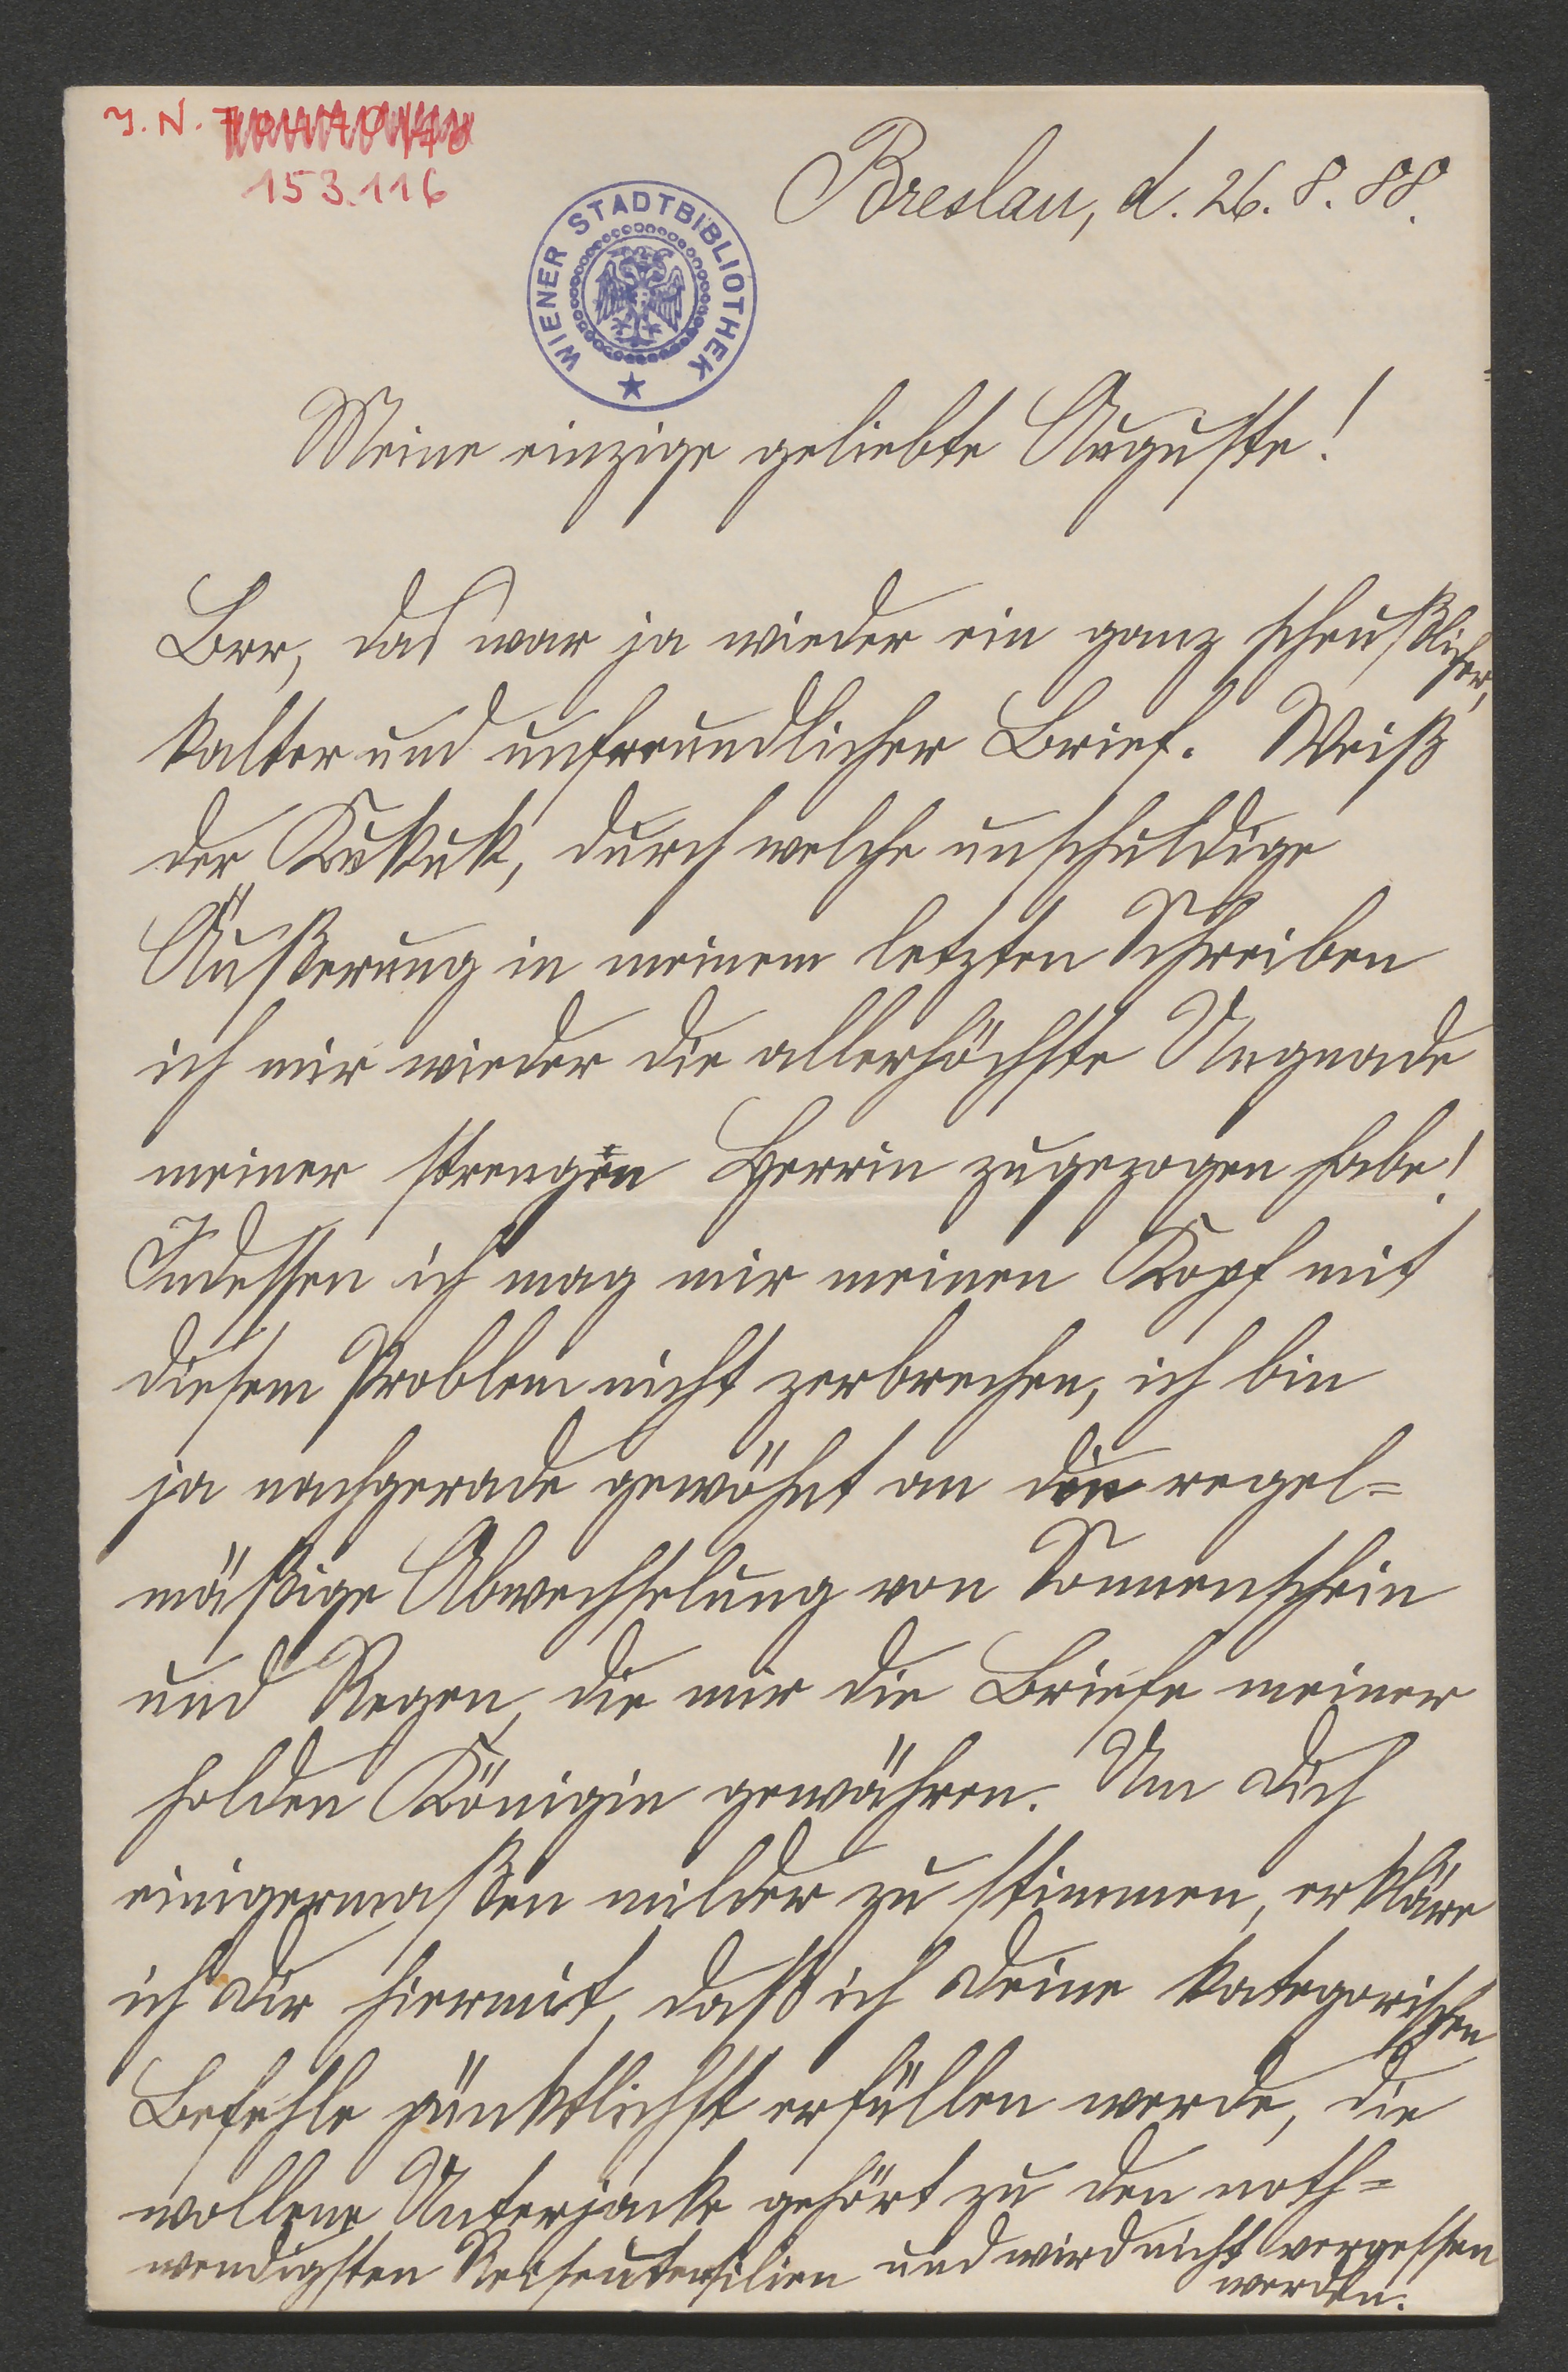 J. N.
153.116
WIENER STADTBIBLIOTHEK
Breslau, d. 26. 8. 88.
Meine einzige geliebte Auguste!
Brr, das war ja wieder ein ganz scheußlicher,
kalter und unfreundlicher Brief. Weiß
der Kukuk, durch welche unschuldige
Äußerung in meinem letzten Schreiben
ich mir wieder die allerhöchste Ungnade
meiner strengen Herrin zugezogen habe!
Indessen ich mag mir meinen Kopf mit
diesem Problem nicht zerbrechen, ich bin
ja nachgerade gewöhnt an die regel=
mäßige Abwechselung von Sonnenschein
und Regen, die mir die Briefe meiner
holden Königin gewähren. Um Dich
einigermaßen milder zu stimmen, erkläre
ich Dir hiermit, daß ich Deine kategorischen
Befehle pünktlichst erfüllen werde, die
wollene Unterjacke gehört zu den noth=
wendigsten Reiseutensilien und wird nicht vergessen
werden.